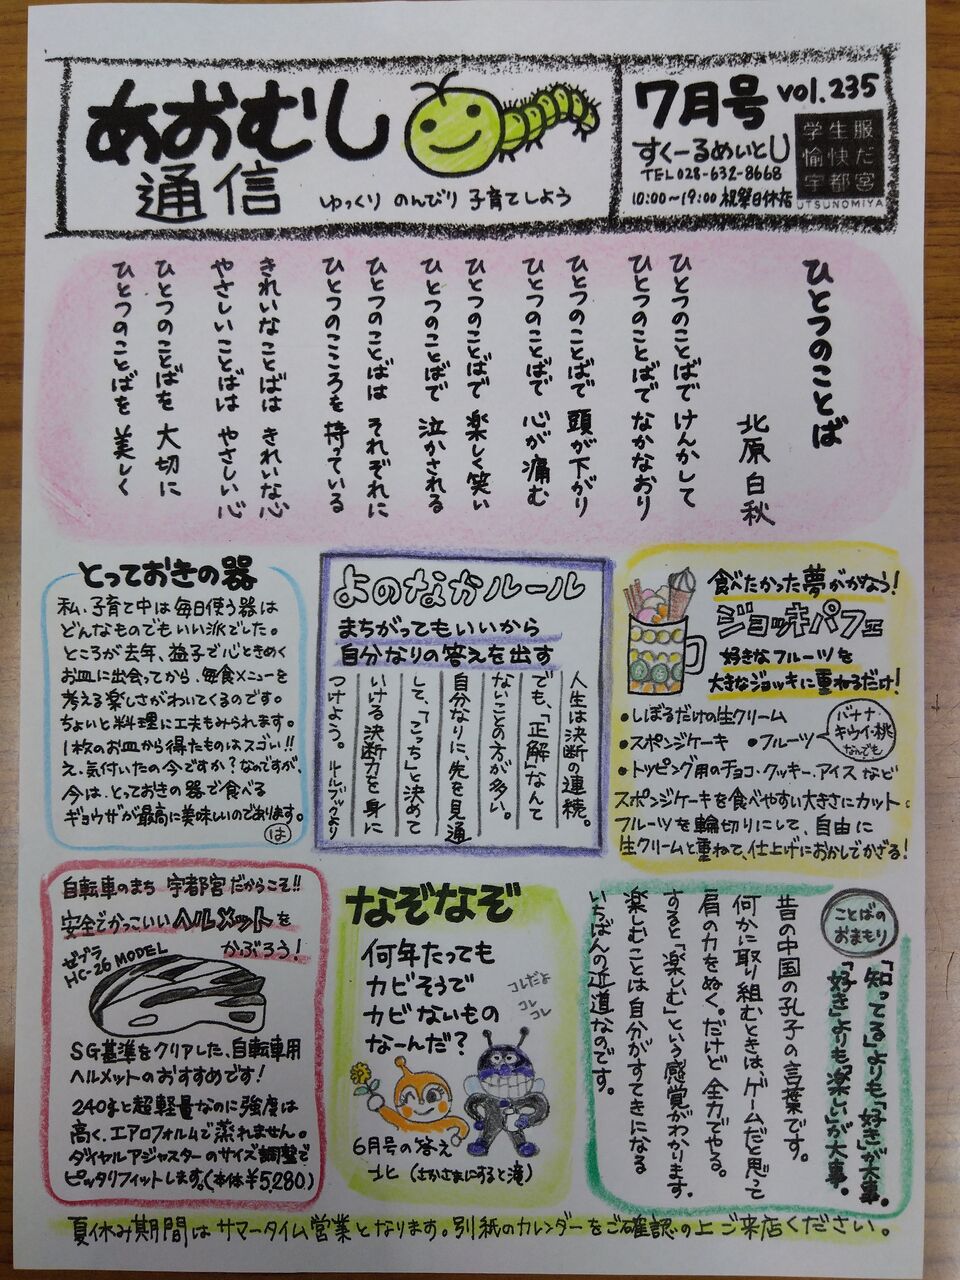 あおむし
通信
ゆっくり のんびり 子育てしよう
7月号 vol.235
すくーるめいとU
TEL 028-632-8668
10:00~19:00 祝祭日休店
学生服
愉快だ
宇都宮
UTSUNOMIYA
ひとつのことば
北原白秋
ひとつのことばで けんかして
ひとつのことばで なかなおり
ひとつのことばで 頭が下がり
ひとつのことばで 心が痛む
ひとつのことばで 楽しく笑い
ひとつのことばで 泣かされる
ひとつのことばは それぞれに
ひとつのこころを 持っている
きれいなことばは きれいな心
やさしいことばは やさしい心
ひとつのことばを 大切に
ひとつのことばを 美しく
とっておきの器
私、子育て中は毎日使う器は
どんなものでもいい派でした。
ところが去年、益子で心ときめく
お皿に出会ってから、毎食メニューを
考える楽しさがわいてくるのです。
ちょいと料理に工夫もみられます。
1枚のお皿から得たものはスゴい!!
え、気付いたの今ですか?なのですが、
今は、とっておきの器で食べる
ギョウザが最高に美味しいのであります。
は
よのなかルール
まちがってもいいから
自分なりの答えを出す
人生は決断の連続。
でも、「正解」なんて
ないことの方が多い。
自分なりに、先を見通
して、「こっち」と決めて
いける決断力を身に
つけよう。 ルールブックより
食べたかった夢がかなう!
ジョッキパフェ
好きなフルーツを
大きなジョッキに重ねるだけ!
・しぼるだけの生クリーム
・スポンジケーキ ・フルーツ
バナナ・
キウイ・桃
なんでも
・トッピング用のチョコ・クッキー・アイス など
スポンジケーキを食べやすい大きさにカット。
フルーツを輪切りにして、自由に
生クリームと重ねて、仕上げにおかしでかざる!
自転車のまち 宇都宮だからこそ!!
安全でかっこいいヘルメットを
かぶろう!
ゼブラ
HC-26 MODEL
SG基準をクリアした、自転車用
ヘルメットのおすすめです!
240gと超軽量なのに強度は
高く、エアロフォルムで蒸れません。
ダイヤルアジャスターのサイズ調整で
ピッタリフィットします。(本体¥5,280)
なぞなぞ
何年たっても
カビそうで
カビないもの
なーんだ?
コレだよ
コレ
コレ
6月号の答え
北 (さかさまにすると滝)
ことばの
おまもり
「知ってる」よりも「好き」が大事。
「好き」よりも「楽しい」が大事。
昔の中国の孔子の言葉です。
何かに取り組むときは、ゲームだと思って
肩の力をぬく。だけど全力でやる。
すると「楽しむ」という感覚がわかります。
楽しむことは自分がすてきになる
いちばんの近道なのです。
夏休み期間はサマータイム営業となります。別紙のカレンダーをご確認の上ご来店ください。